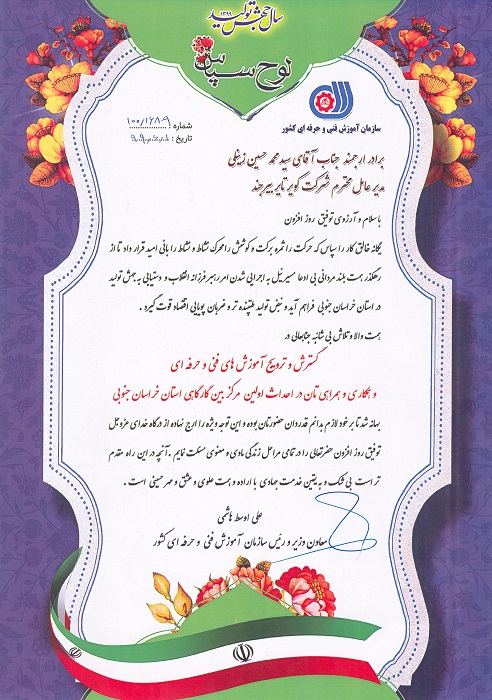 سال جهش تولید
۱۳۹۹
لوح سپاس
سازمان آموزش فنی و حرفه ای کشور
شماره : ۱۰۰/۱۲۸۰۹
تاریخ :
برادر ارجمند جناب آقای سید محمد حسین زینلی
مدیر عامل محترم شرکت کویر تایر بیرجند
با سلام و آرزوی توفیق روز افزون
یگانه خالق کار را سپاس که حرکت را ثمره برکت و کوشش را محرک نشاط و نشاط را بانی امید قرار داد تا از
رهگذر همت بلند مردانی بی ادعا مسیر نیل به اجرایی شدن امر رهبر فرزانه انقلاب و دستیابی به جهش تولید
در استان خراسان جنوبی فراهم آید و نبض تولید تپنده تر و ضربان پویایی اقتصاد قوت گیرد .
همت والا و تلاش بی شائبه جنابعالی در
گسترش و ترویج آموزش های فنی و حرفه ای
و همکاری و همراهی تان در احداث اولین مرکز بین کارگاهی استان خراسان جنوبی
بهانه شد تا بر خود لازم بدانم قدردان حضورتان بوده و این توجه ویژه را ارج نهاده از درگاه خدای عزوجل
توفیق روز افزون حضرتعالی را در تمامی مراحل زندگی مادی و معنوی مسئلت نمایم . آنچه در این راه مقدم
تر است بی شک و به یقین خدمت جهادی با اراده و همت علوی و عشق و مهر حسینی است .
علی اوسط هاشمی
معاون وزیر و رئیس سازمان آموزش فنی و حرفه ای کشور